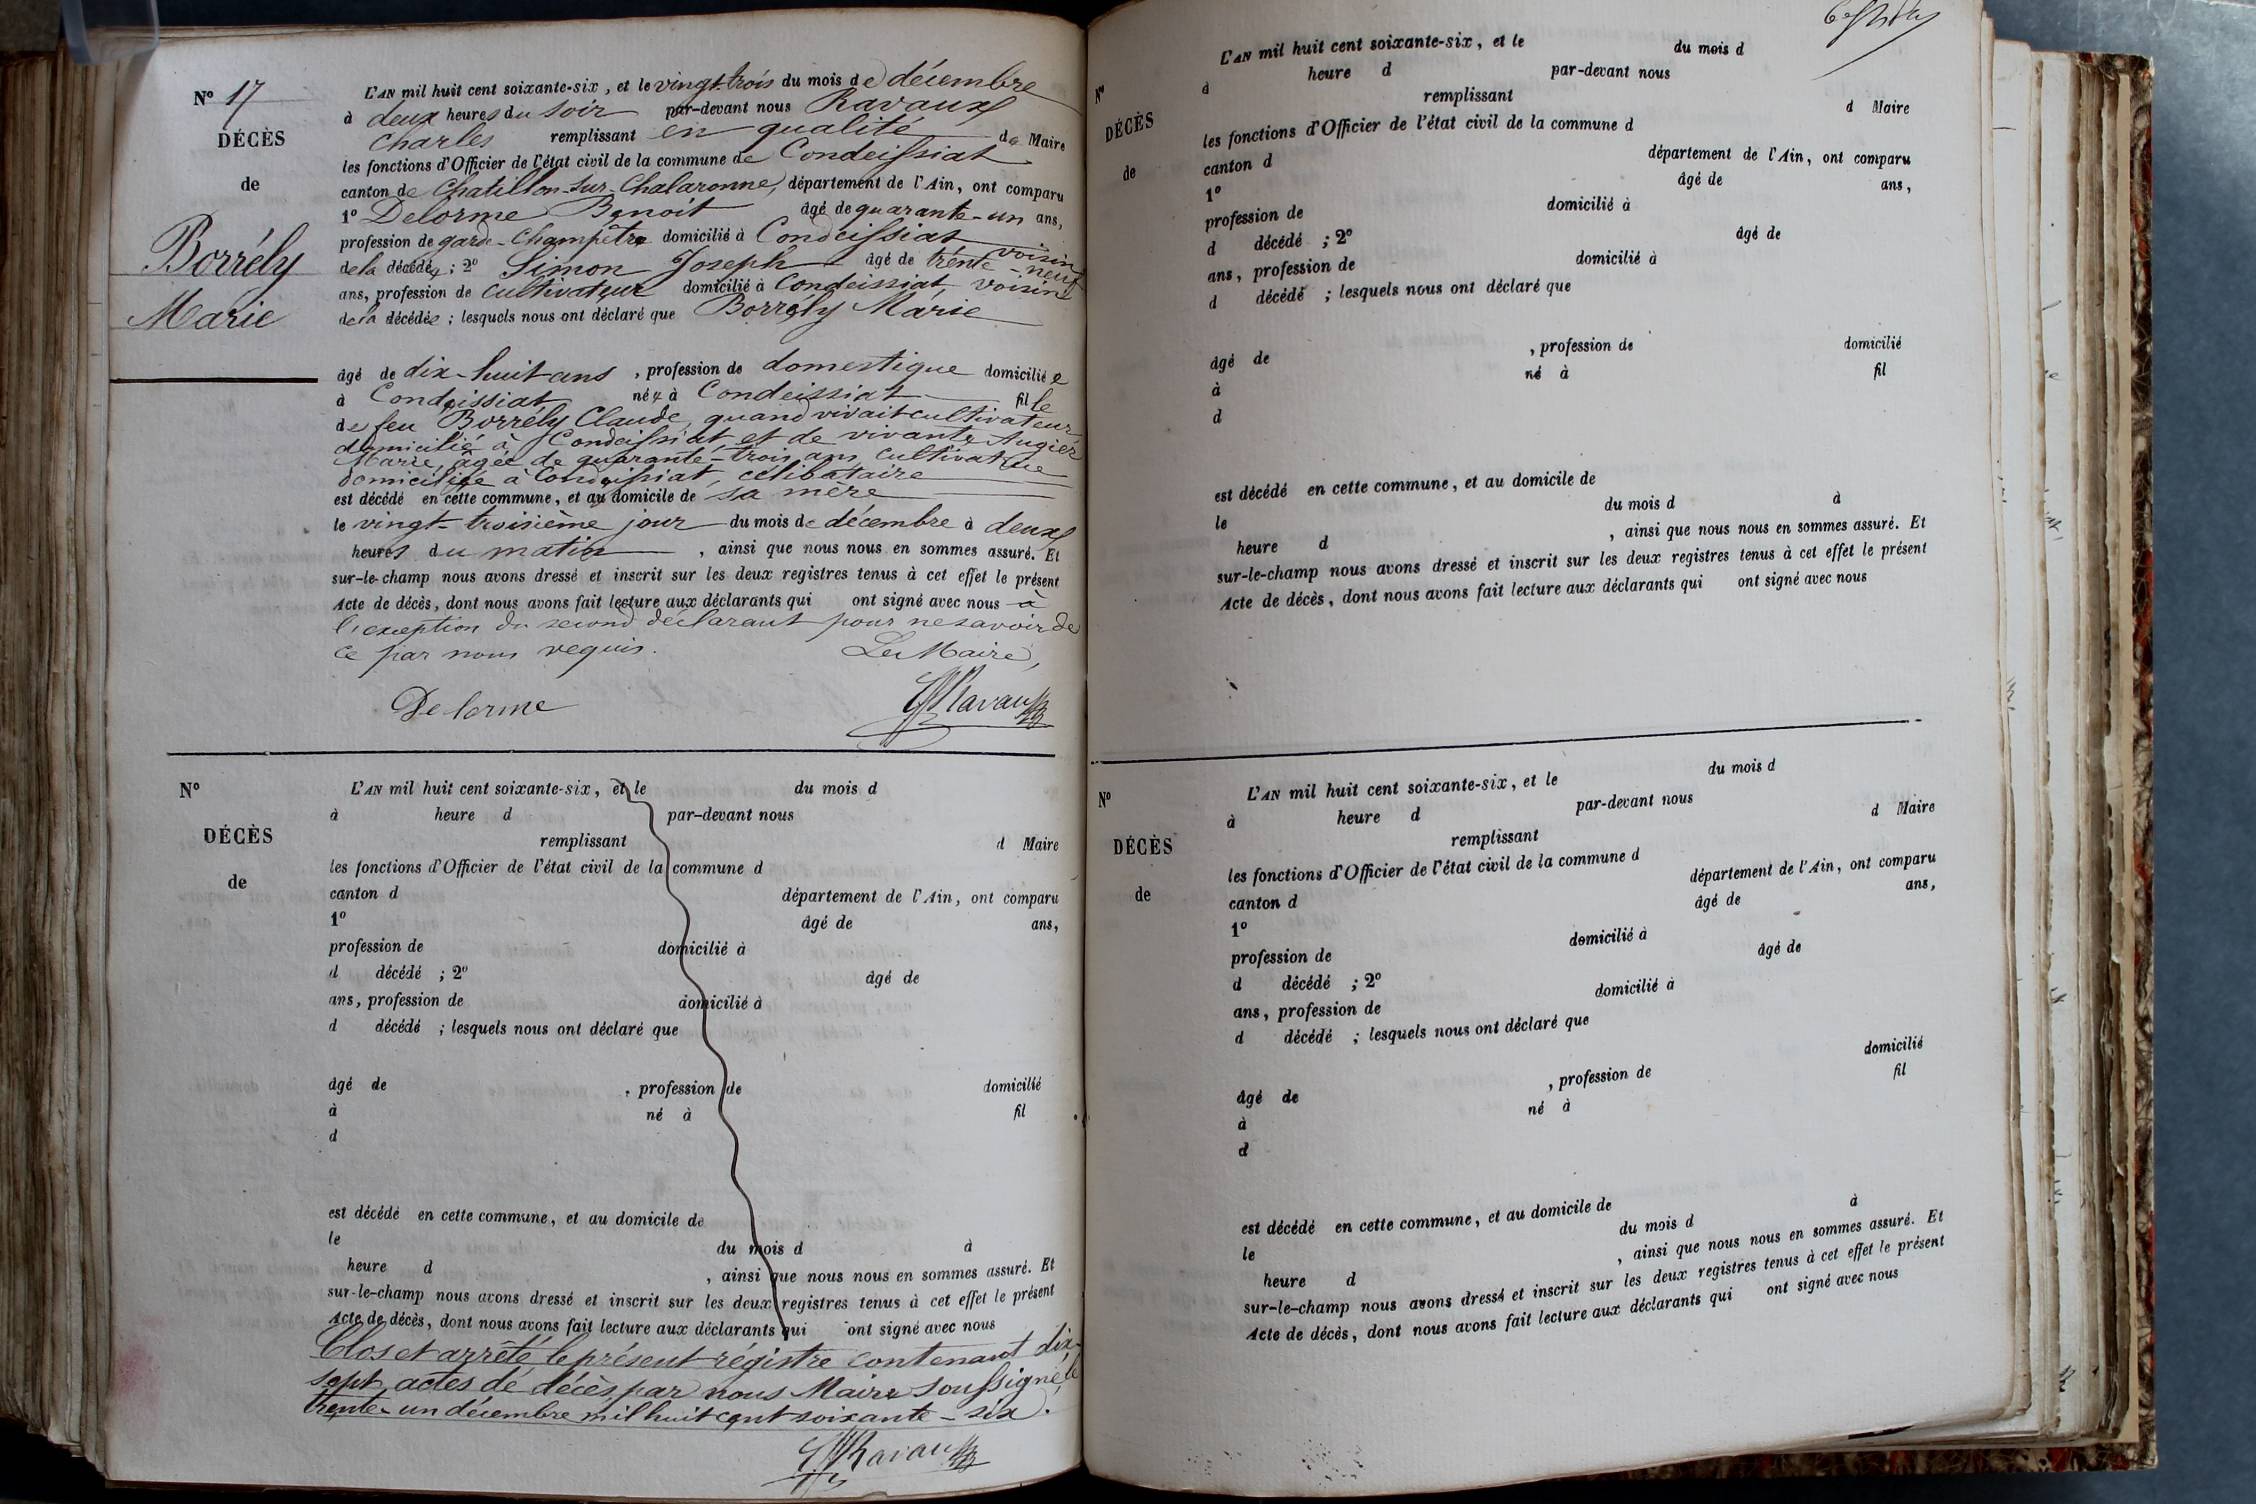 N° 17
DÉCÈS
de
Borrély
Marie
L'AN mil huit cent soixante-six, et le vingt-trois du mois de décembre
à deux heures du soir par-devant nous Ravaux
Charles remplissant en qualité de Maire
les fonctions d'Officier de l'état civil de la commune de Condeissiat
canton de Chatillon-sur-Chalaronne, département de l'Ain, ont comparu
1° Delorme Benoit âgé de quarante-un ans,
profession de garde-Champêtre domicilié à Condeissiat voisin
de la décédée ; 2° Simon Joseph âgé de trente-neuf
ans, profession de cultivateur domicilié à Condeissiat, voisin
de la décédée ; lesquels nous ont déclaré que Borrély Marie
âgé de dix-huit ans, profession de domestique domiciliée
à Condeissiat née à Condeissiat fille
de feu Borrély Claude, quand vivait cultivateur
domicilié à Condeissiat et de vivante Augier
Marie, âgée de quarante-trois ans, cultivatrice
domiciliée à Condeissiat, célibataire
est décédé en cette commune, et au domicile de sa mère
le vingt-troisième jour du mois de décembre à deux
heures du matin, ainsi que nous nous en sommes assuré. Et
sur-le-champ nous avons dressé et inscrit sur les deux registres tenus à cet effet le présent
Acte de décès, dont nous avons fait lecture aux déclarants qui ont signé avec nous à
l'exception du second déclarant pour ne savoir de
ce par nous requis. Le Maire,
Delorme Ravaux
N°
DÉCÈS
de
L'AN mil huit cent soixante-six, et le du mois d
à heure d par-devant nous
remplissant d Maire
les fonctions d'Officier de l'état civil de la commune d
canton d département de l'Ain, ont comparu
1° âgé de ans,
profession de domicilié à
d décédé ; 2° âgé de
ans, profession de domicilié à
d décédé ; lesquels nous ont déclaré que
âgé de , profession de domicilié
à né à fil
d
est décédé en cette commune, et au domicile de
le du mois d à
heure d , ainsi que nous nous en sommes assuré. Et
sur-le-champ nous avons dressé et inscrit sur les deux registres tenus à cet effet le présent
Acte de décès, dont nous avons fait lecture aux déclarants qui ont signé avec nous
Clos et arrêté le présent régistre contenant dix-
sept actes de décès par nous Maire soussigné, le
trente-un décembre mil huit cent soixante-six.
Ravaux
N°
DÉCÈS
de
L'AN mil huit cent soixante-six, et le du mois d
à heure d par-devant nous
remplissant d Maire
les fonctions d'Officier de l'état civil de la commune d
canton d département de l'Ain, ont comparu
1° âgé de ans,
profession de domicilié à
d décédé ; 2° âgé de
ans, profession de domicilié à
d décédé ; lesquels nous ont déclaré que
âgé de , profession de domicilié
à né à fil
d
est décédé en cette commune, et au domicile de
le du mois d à
heure d , ainsi que nous nous en sommes assuré. Et
sur-le-champ nous avons dressé et inscrit sur les deux registres tenus à cet effet le présent
Acte de décès, dont nous avons fait lecture aux déclarants qui ont signé avec nous
N°
DÉCÈS
de
L'AN mil huit cent soixante-six, et le du mois d
à heure d par-devant nous
remplissant d Maire
les fonctions d'Officier de l'état civil de la commune d
canton d département de l'Ain, ont comparu
1° âgé de ans,
profession de domicilié à
d décédé ; 2° âgé de
ans, profession de domicilié à
d décédé ; lesquels nous ont déclaré que
âgé de , profession de domicilié
à né à fil
d
est décédé en cette commune, et au domicile de
le du mois d à
heure d , ainsi que nous nous en sommes assuré. Et
sur-le-champ nous avons dressé et inscrit sur les deux registres tenus à cet effet le présent
Acte de décès, dont nous avons fait lecture aux déclarants qui ont signé avec nous